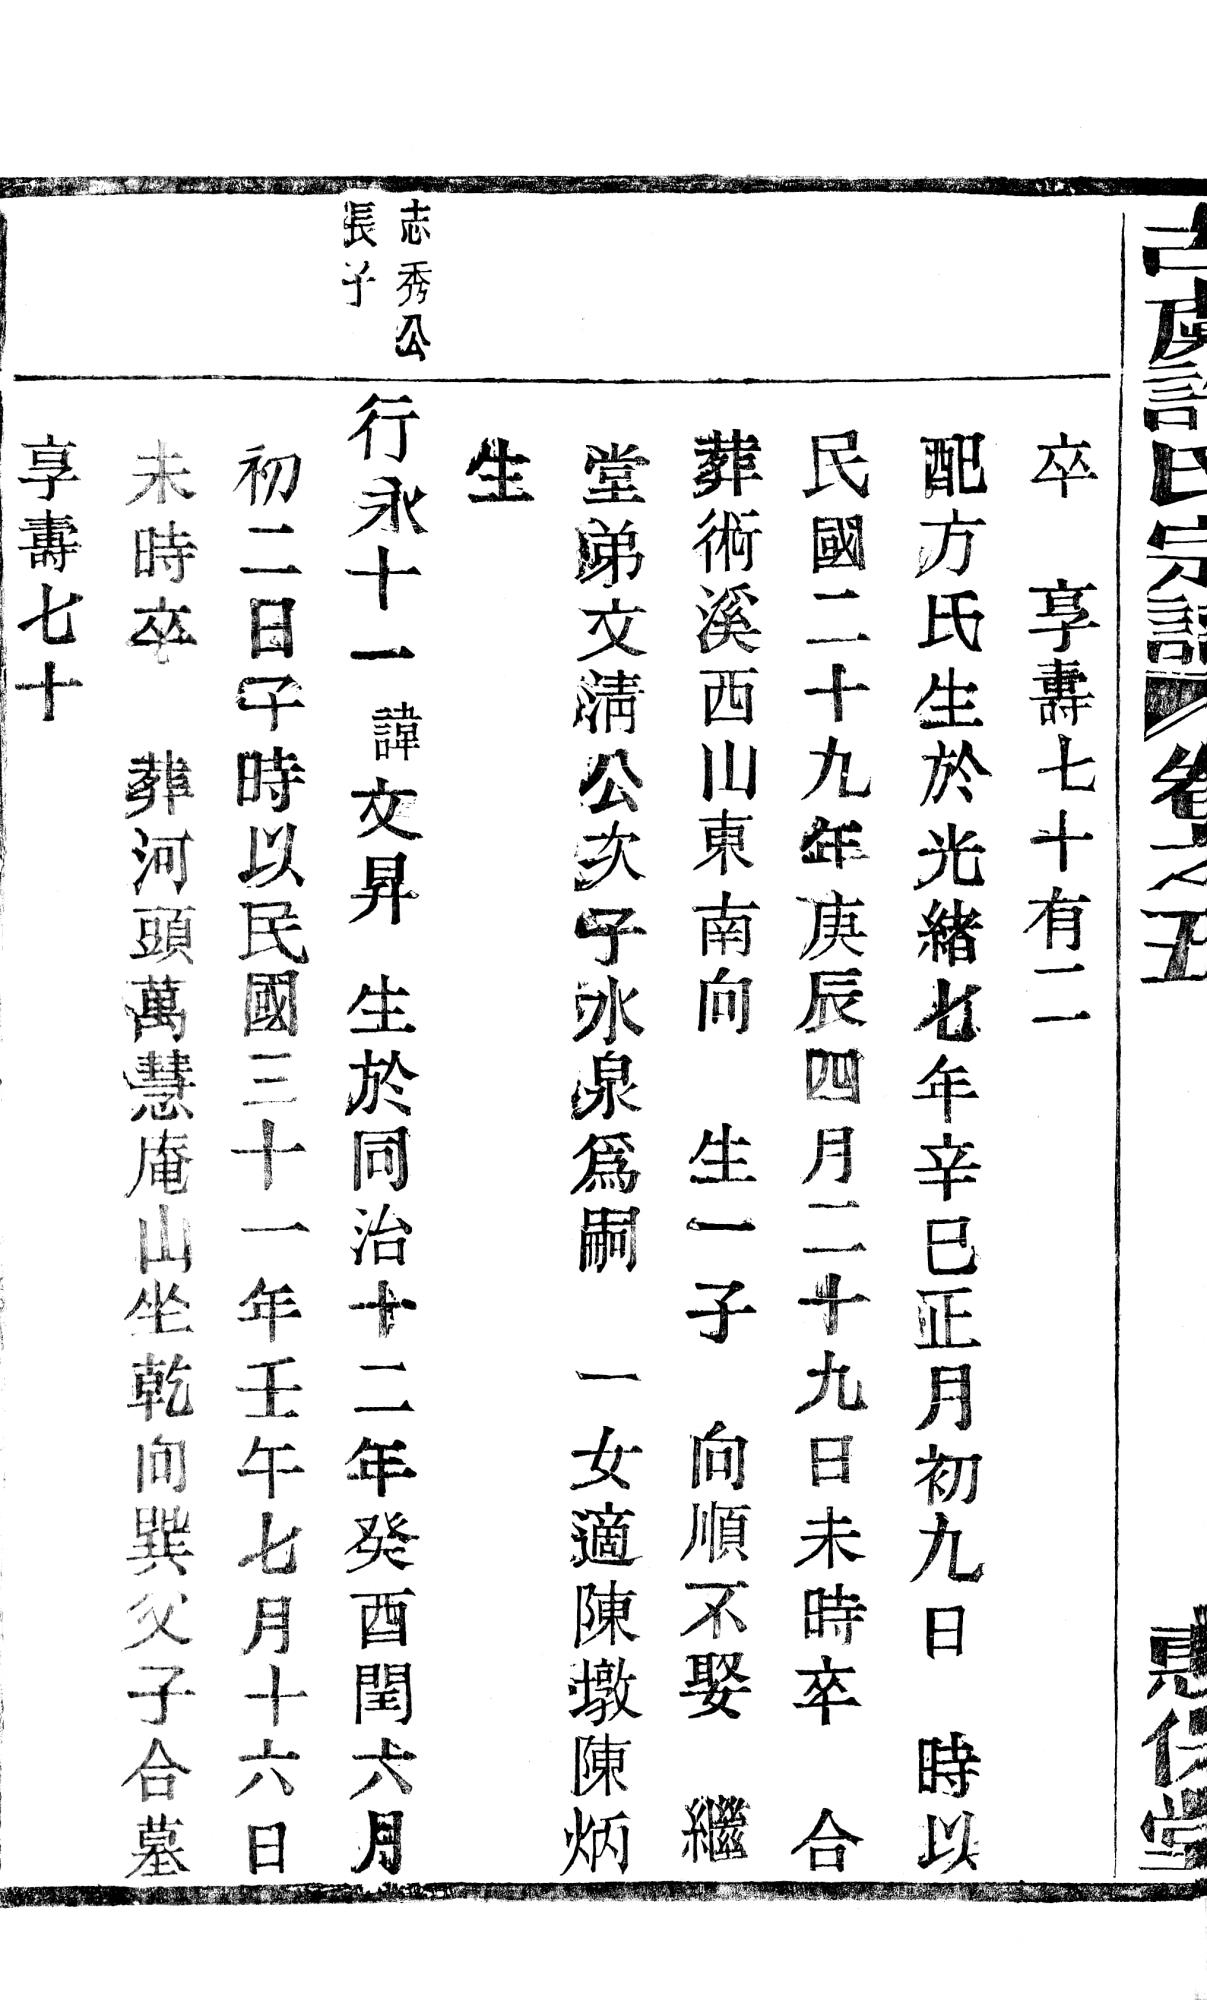 古虞許氏宗譜 卷之五
卒 享壽七十有二
配方氏生於光緒七年辛巳正月初九日 時以
民國二十九年庚辰四月二十九日未時卒 合
葬術溪西山東南向 生一子 向順不娶 繼
堂弟文清公次子水泉爲嗣 一女適陳墩陳炳
生
志秀公
長子
行永十一 諱文昇 生於同治十二年癸酉閏六月
初二日子時以民國三十一年壬午七月十六日
未時卒 葬河頭萬慧庵山坐乾向巽父子合墓
享壽七十